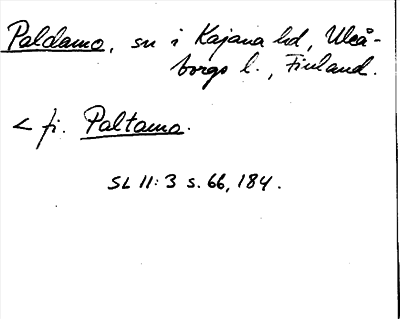 Paldamo, sn i Kajana hd, Uleå-
borgs l., Finland.
< fi. Paltamo.
SL 11:3 s. 66, 184.